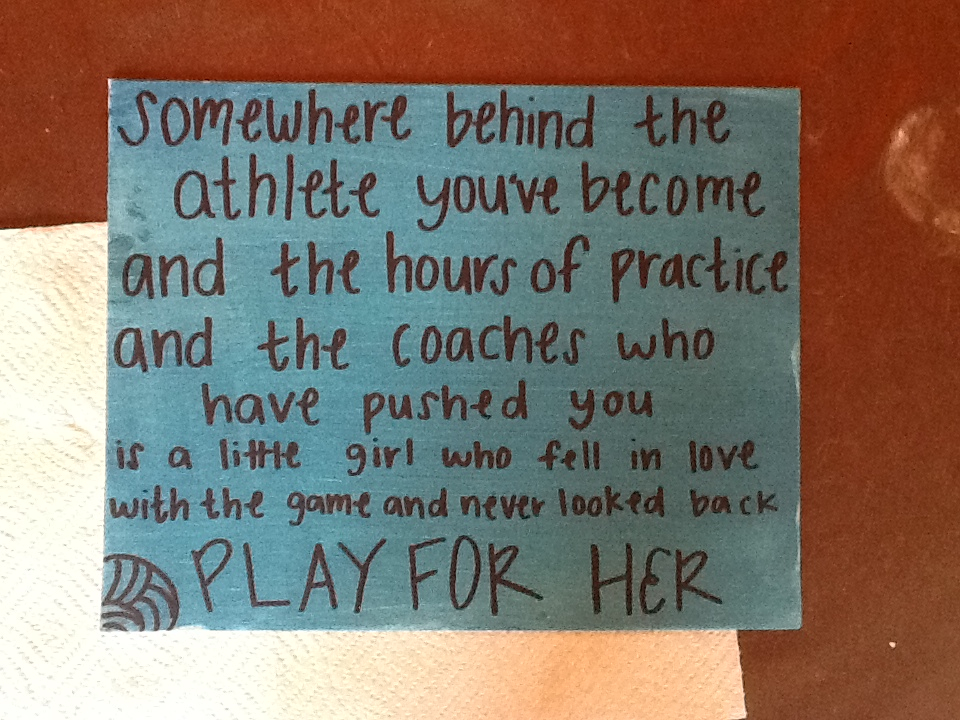 somewhere behind the
athlete you've become
and the hours of practice
and the coaches who
have pushed you
is a little girl who fell in love
with the game and never looked back
PLAY FOR HER